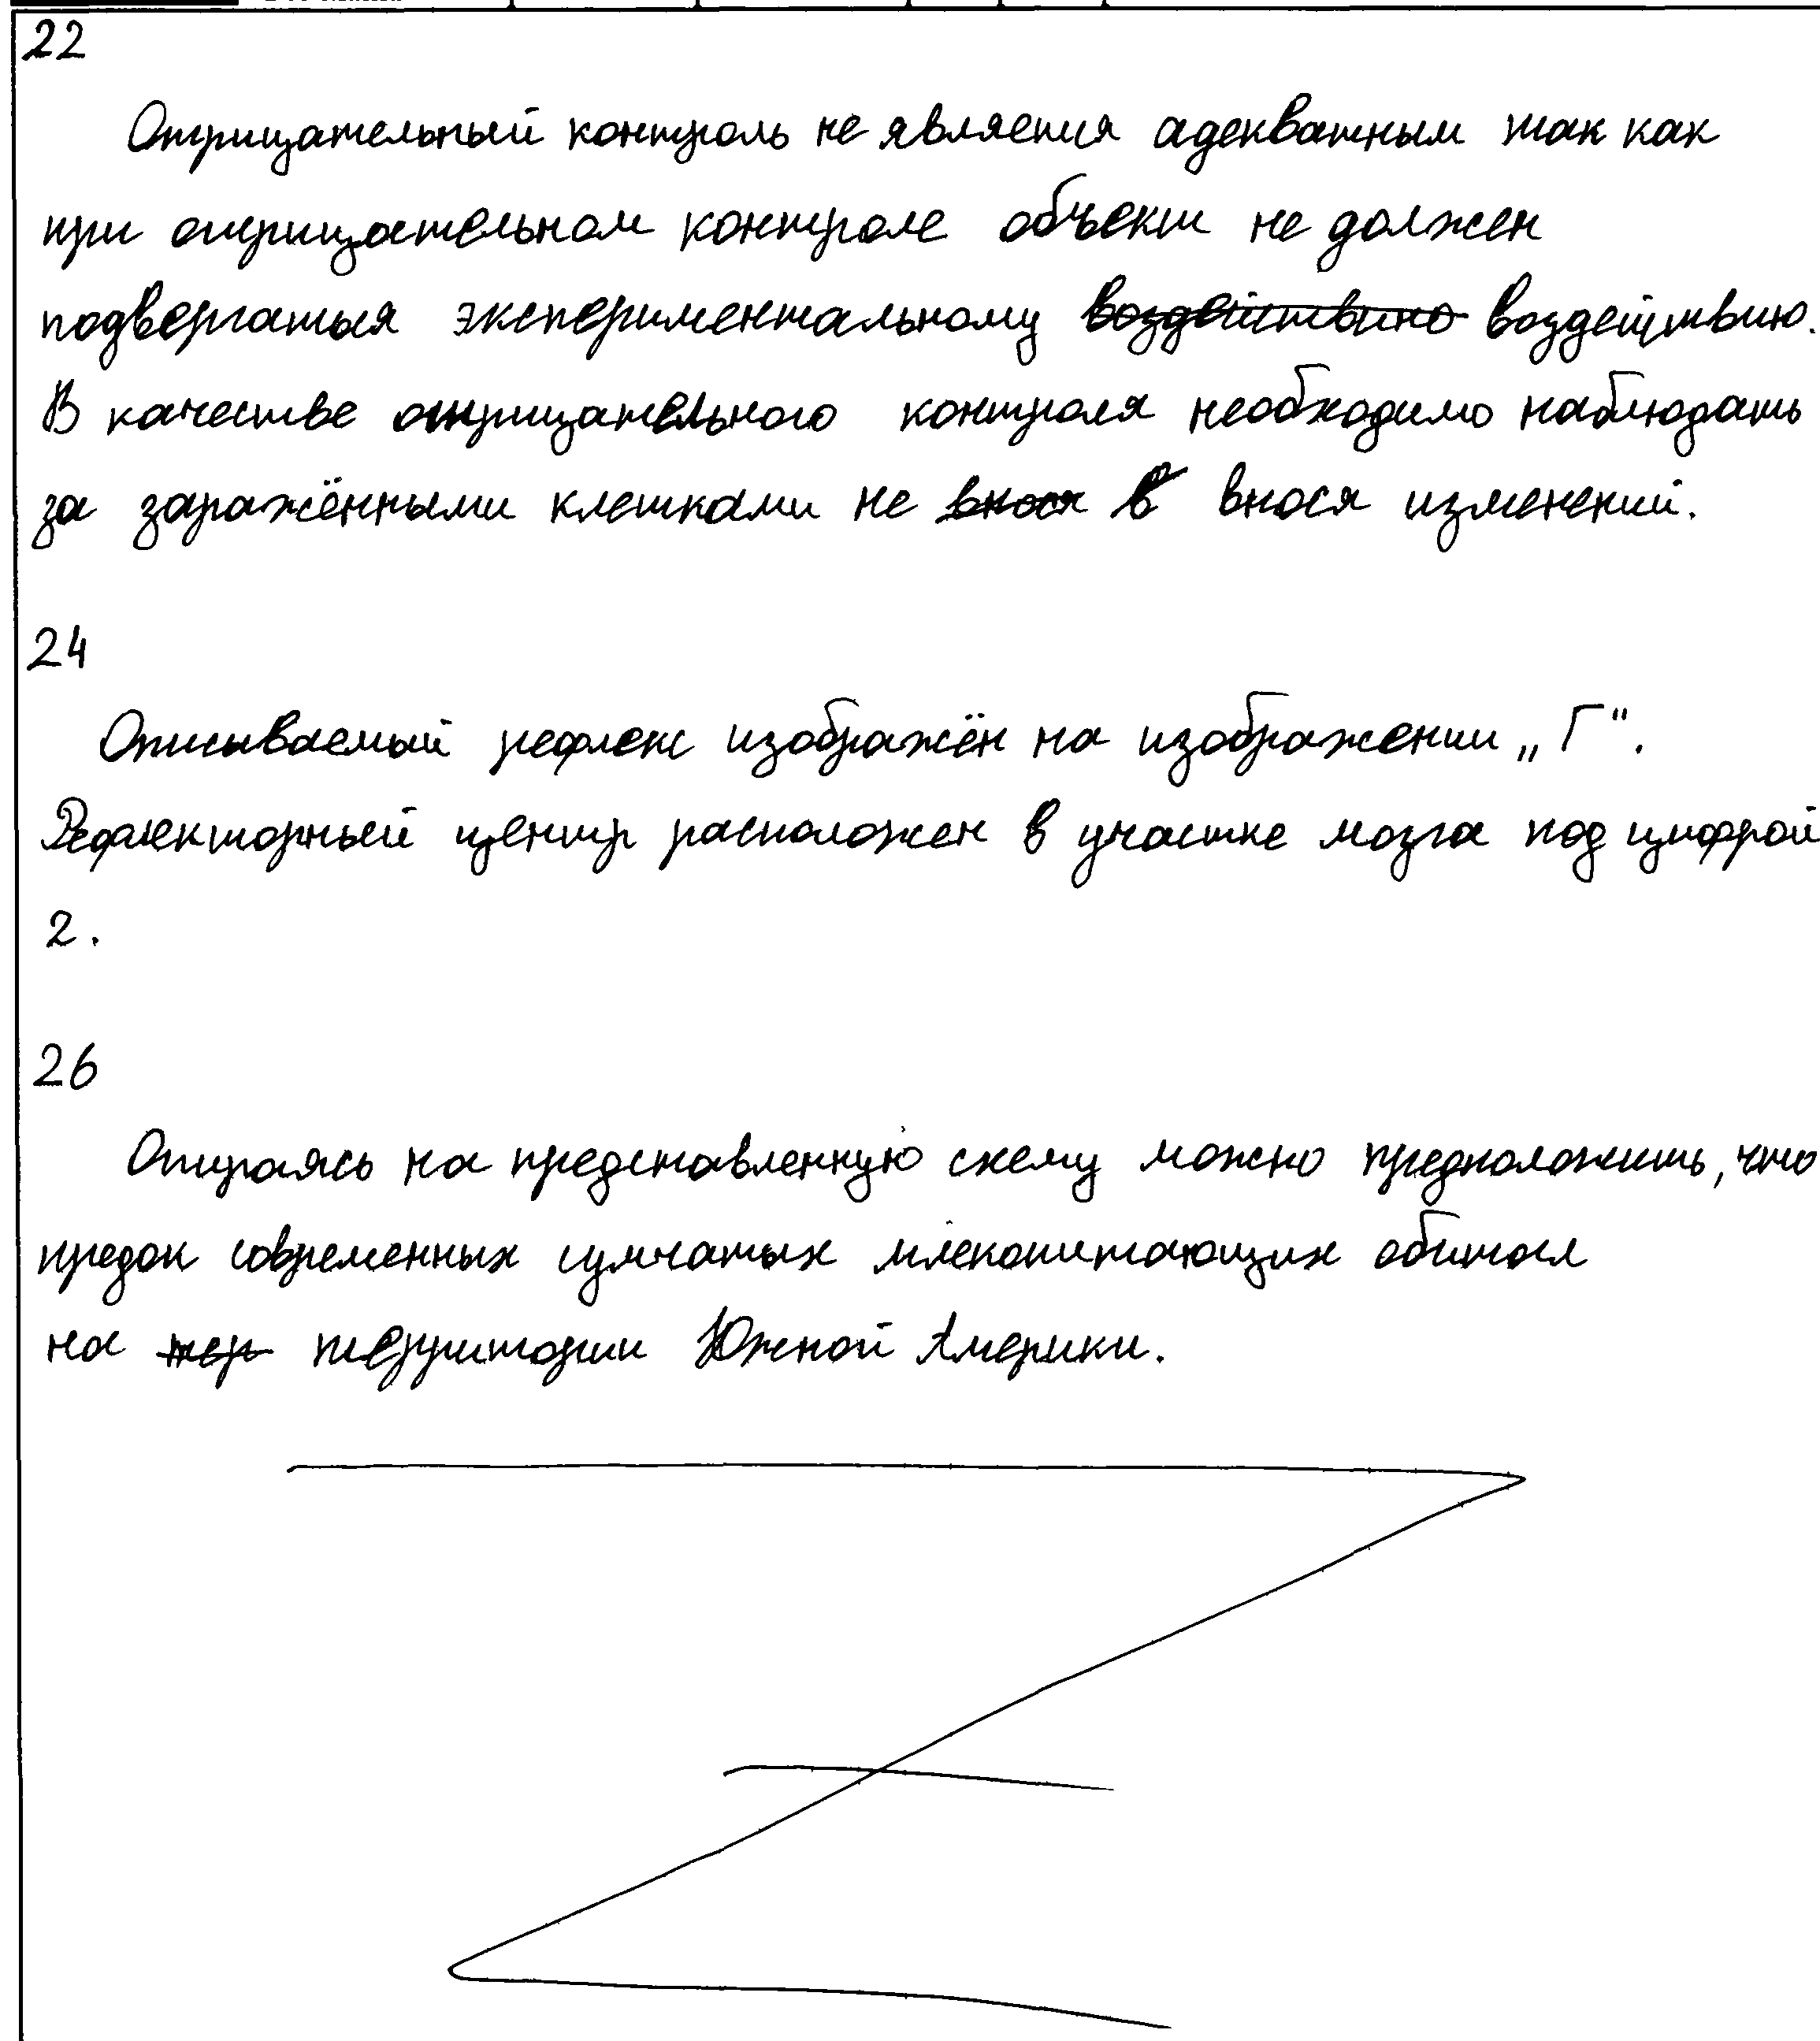 22
Отрицательный контроль не является адекватным так как
при отрицательном контроле объект не должен
подвергаться экспериментальному воздействию воздействию.
В качестве отрицательного контроля необходимо наблюдать
за заражёнными клетками не внося в внося изменений.
24
Описываемый рефлекс изображён на изображении „Г“.
Рефлекторный центр расположен в участке мозга под цифрой
2.
26
Опираясь на представленную схему можно предположить, что
предок современных сумчатых млекопитающих обитал
на тер территории Южной Америки.